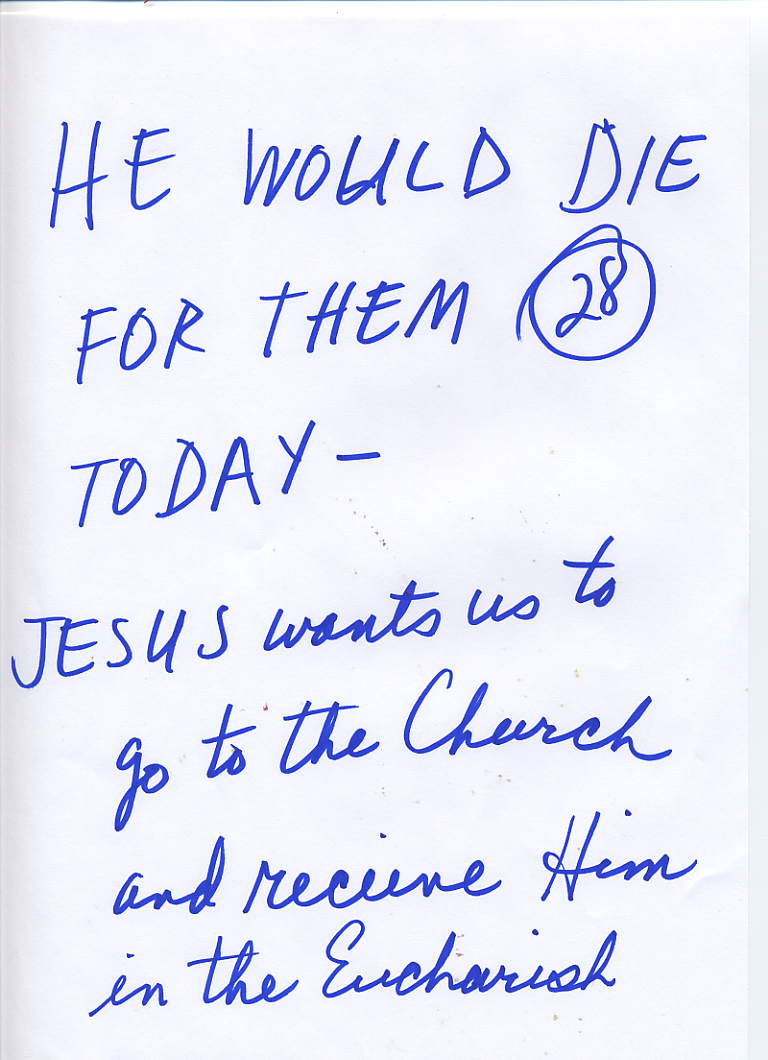 HE WOULD DIE
FOR THEM 28
TODAY-
JESUS wants us to
go to the Church
and recieve Him
in the Eucharish